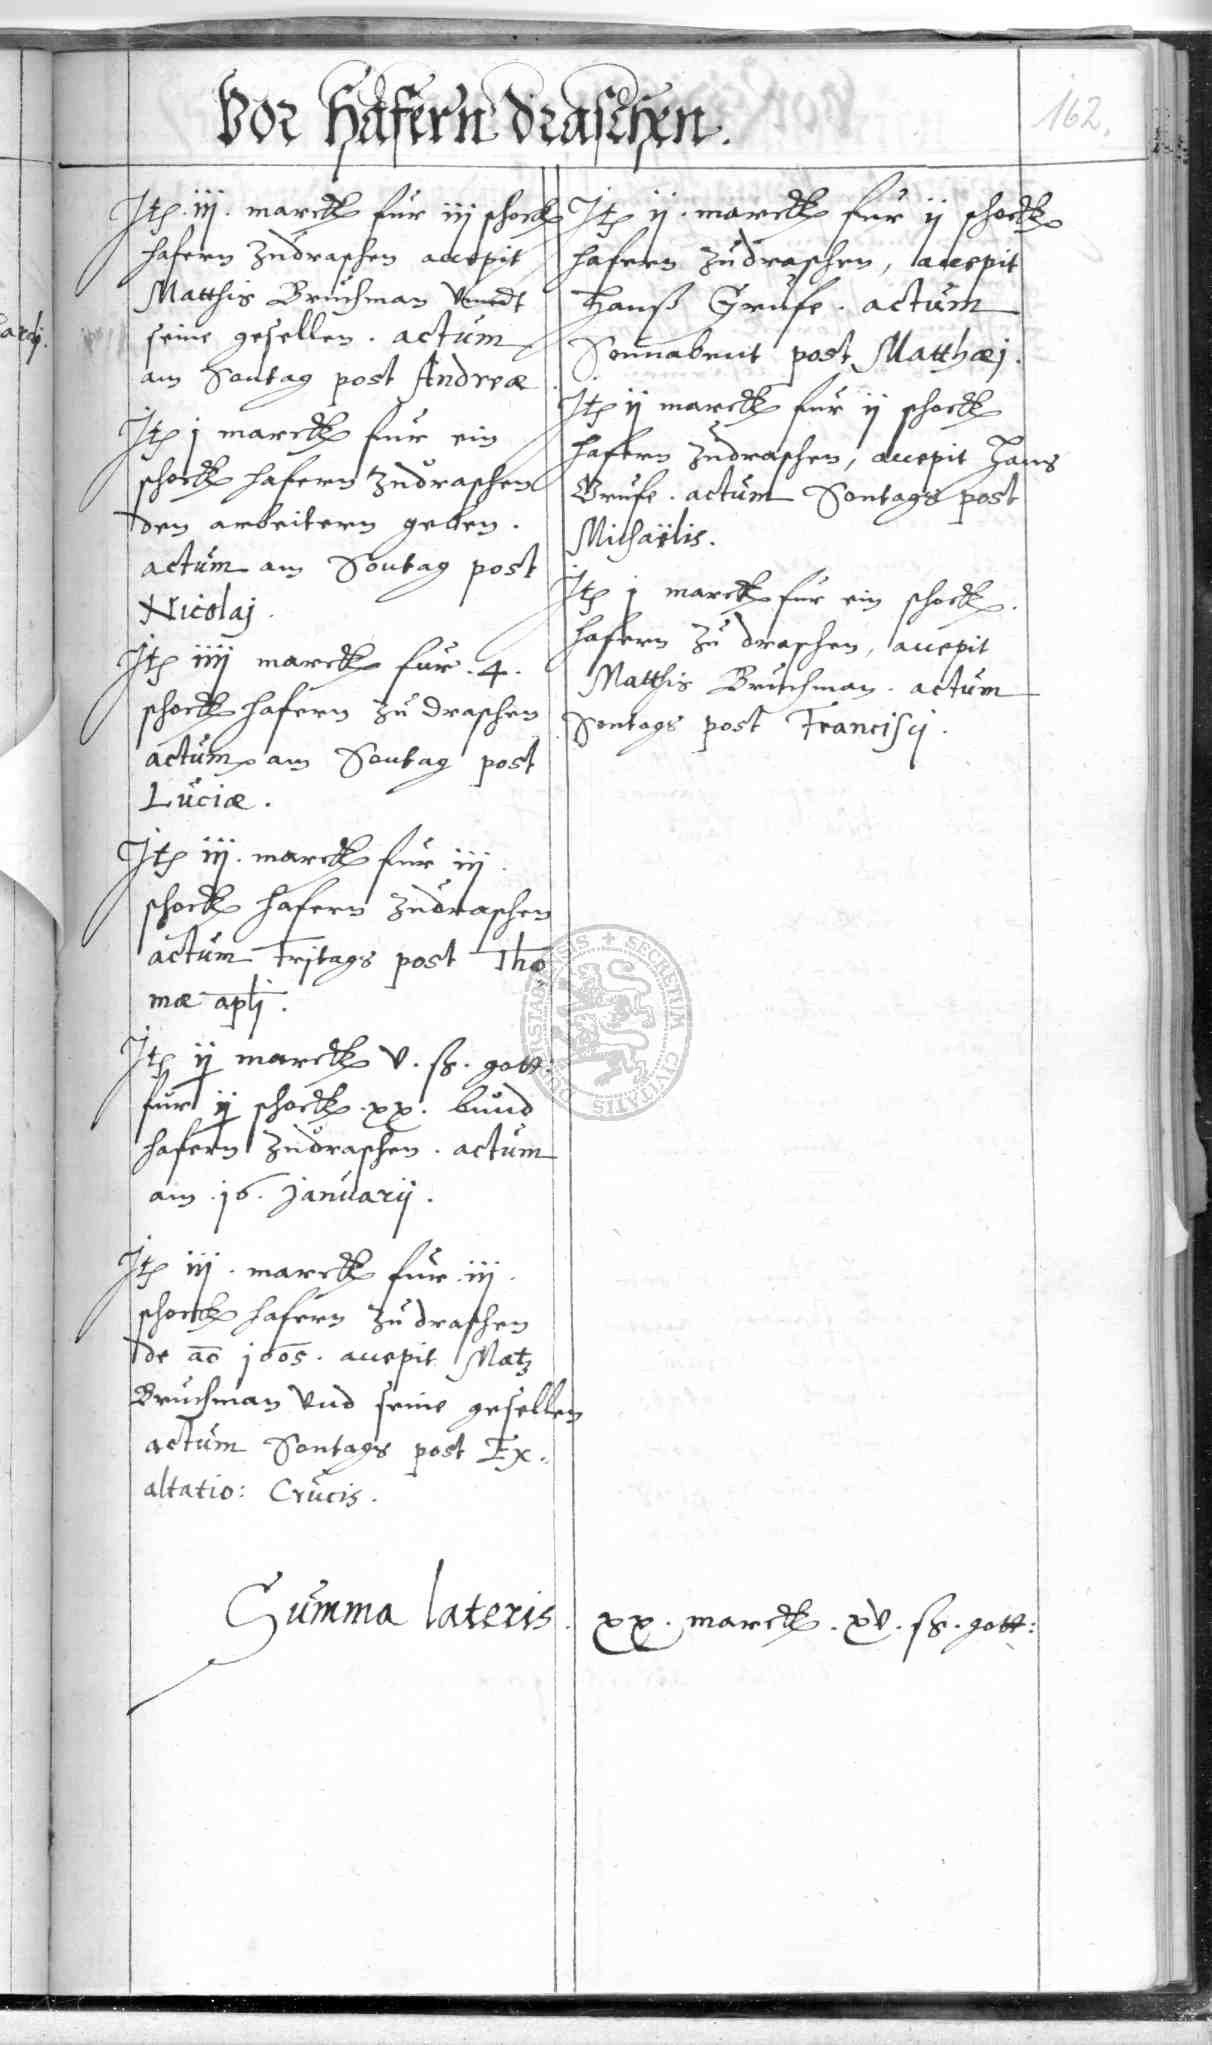 162.
Vor Hafern draschen.
Jtꝫ . iij . marckꝫ für iij schockꝫ
hafern zudraschen accepit
Matthis Bruchman vnndt
seine gesellen . actum
am Sontag post Andreæ
Jtꝫ j marckꝫ für ein
schockꝫ hafern zudraschen
den arbeitern geben .
actum am Sontag post
Nicolaj .
Jtꝫ iiij marckꝫ für . 4 .
schockꝫ hafern zu draschen
actum am Sontag post
Luciæ .
Jtꝫ iij . marckꝫ für iij .
schockꝫ hafern zudraschen
actum Frjtags post Tho
mæ apłj .
Jtꝫ ij marckꝫ v . sß . gott:
für ij schockꝫ . xx . bund
hafern zudraschen . actum
am . j6 . Januarij .
Jtꝫ iij . marckꝫ für . iij .
schockꝫ hafern zu draschen
de ao j605 . accepit Matz
Bruchman vnd seine gesellen
actum Sontags post Ex=
altatio: Crucis .
Jtꝫ ij . marckꝫ für ij schockꝫ
hafern zudraschen, accepit
Hanß Grufe . actum
Sonnabent post Matthæj .
Jtꝫ ij marckꝫ für ij schockꝫ
hafern zudraschen, accepit Hans
Grufe . actum Sontags post
Michaëlis .
Jtꝫ j marckꝫ für ein schockꝫ .
hafern zu draschen, accepit
Matthis Bruchman . actum
Sontags post Francisçj .
Summa lateris . xx . marckꝫ . xv . sß . gott:
SECRETUM CIVITATIS